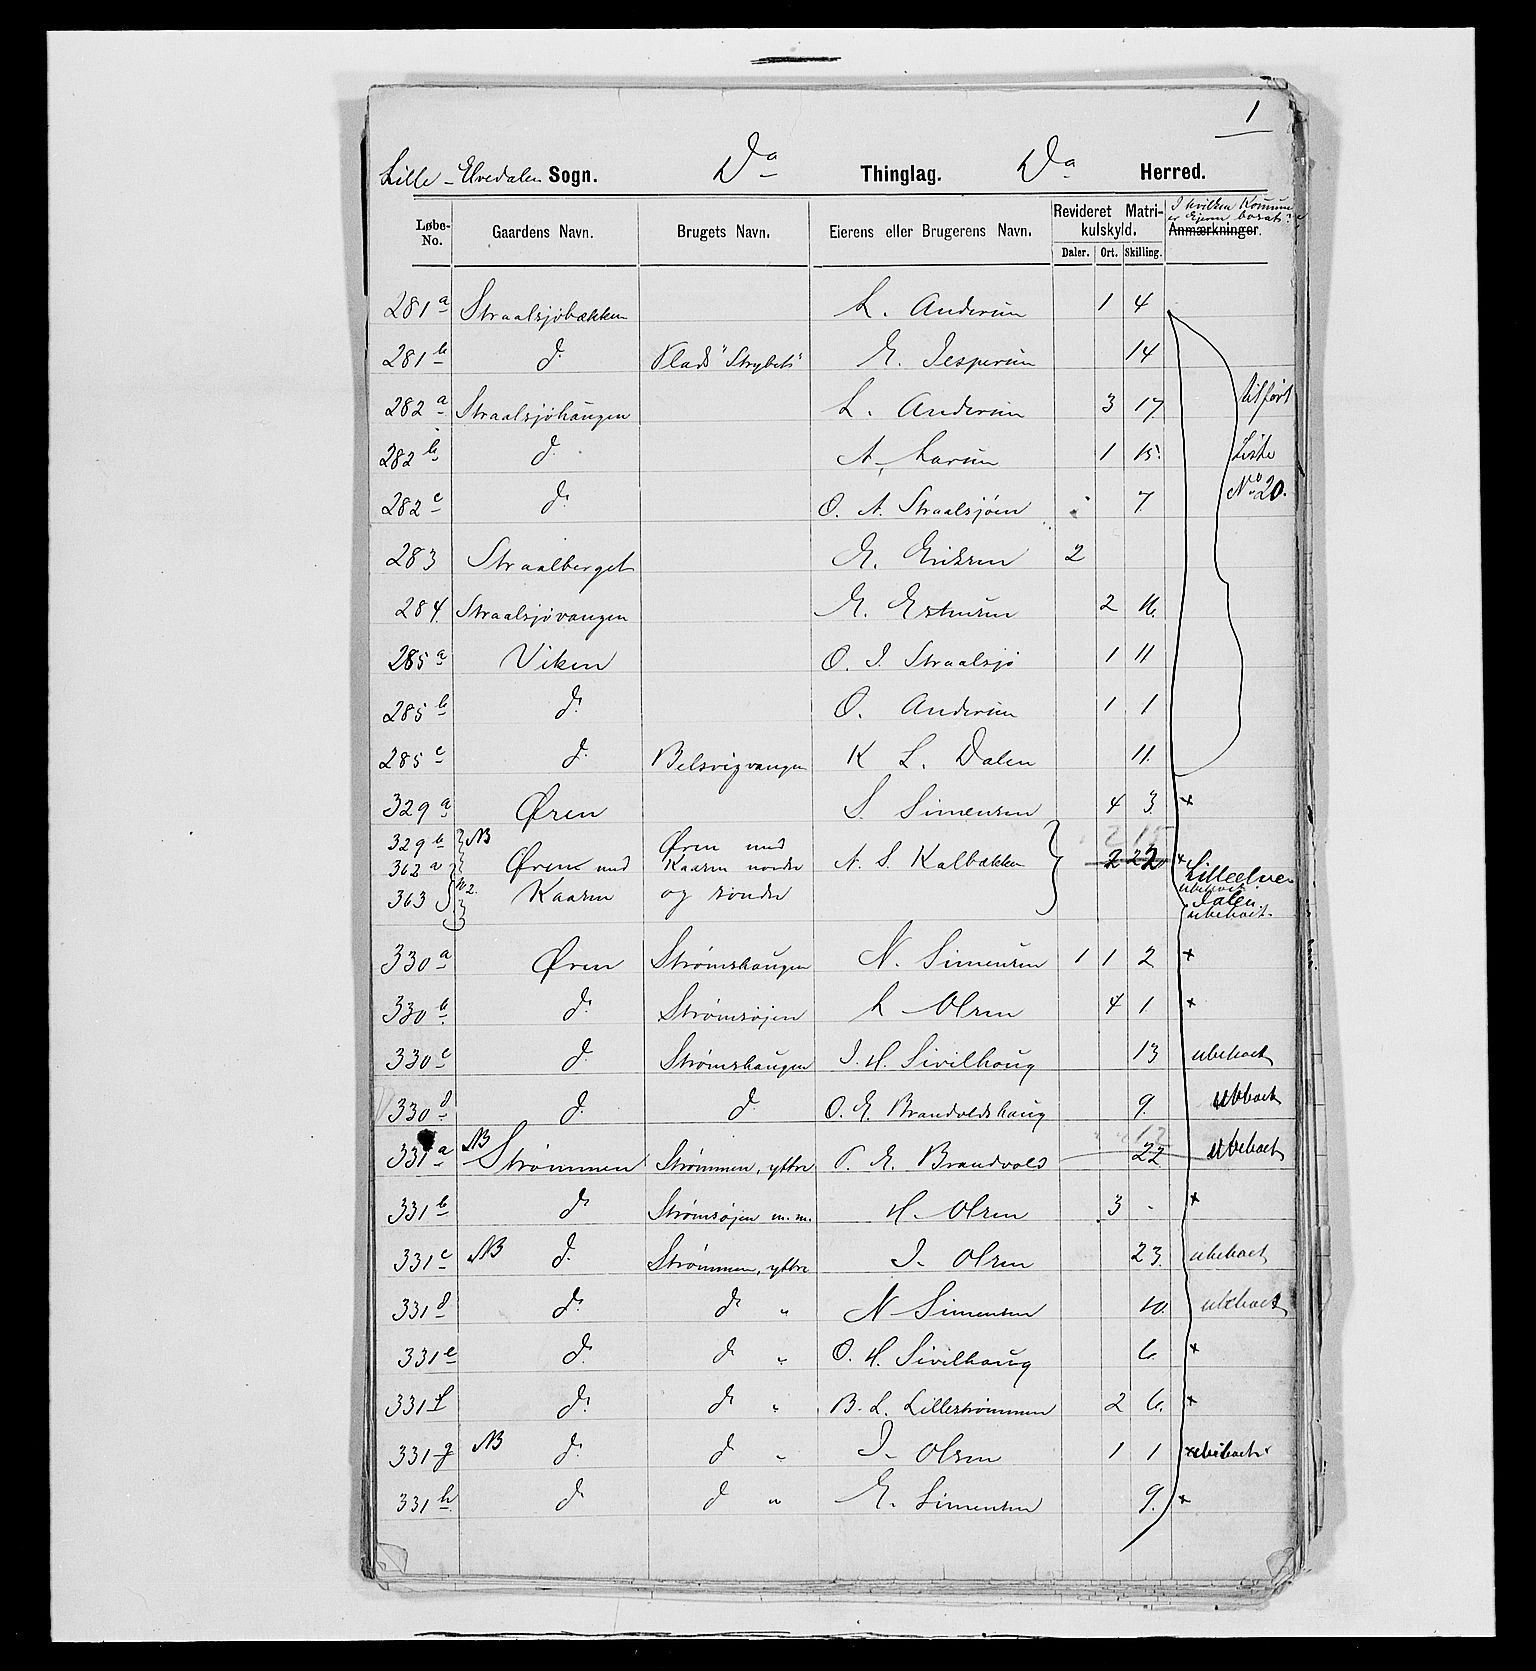 1
Lille-Elvedalen Sogn. Do Thinglag. Do Herred.
Løbe-No. Gaardens Navn. Brugets Navn. Eierens eller Brugerens Navn. Revideret Matrikulskyld. I hvilken Kommune er Ejeren bosat? Anmærkninger.
Daler. Ort. Skilling.
281 a Straalsjøbækken L. Andersen 1 4
281 b d. Plads "Strybet" E. Jespersen 14
282 a Straalsjøhaugen L. Andersen 3 17 Utført
282 b d. A. Larsen 1 15. Liste
282 c d. O. A. Straalsjøen 7 No 20.
283 Straalberget E. Eriksen 2
284. Straalsjøvangen E. Estensen 2 16.
285 a Viken O. J. Straalsjø 1 11
285 b d. O. Andersen 1 1
285 c d. Belsvigvangen K L. Dalen 11.
329 a Øren S. Simensen 4 3. x
329 b NB Øren med
362 a Øren med Kaasen nordre A. S. Kalbækken 2 22 x Lilleelve-
ubeboet
363 Kaasen og søndre dalen.
ubeboet.
330 a Øren Strømshaugen N. Simensen 1 1 2 x
330 b. d. Strømsøjen L Olsen 4 1. x
330 c d. Strømshaugen J. H. Sivilhaug 13 ubeboet
330 d d. d. O. E. Brandvoldshaug 9. ubeboet
331 a NB Strømmen Strømmen, yttre P. E. Brandvold 22 ubeboet
331 b d. Strømsøjen m.m. H. Olsen 3 - x
331 c NB d. Strømmen, yttre J. Olsen 23. ubeboet
331 d d. d. " N Simensen 10. ubeboet
331 e d. d. " O. H. Sivilhaug 6. x
331 f d. d. " B. L. Lillestrømmen 2 6. x
331 g NB d. d. " J. Olsen 1 1 x ubeboet
331 h. d. d. " E. Simensen 9. x